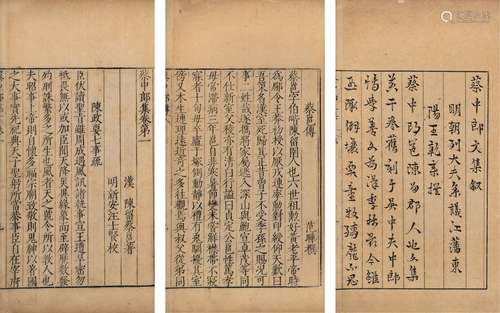 蔡中郎文集叙
明朝列大夫參議江藩東
蔡中郎邕陳留郡人也文集
若干卷舊刻于吳中夫中郎
蔡邕傳
范曄撰
蔡邕字伯喈陳留圉人也六世祖勳好黃老平帝時
為郿令王莽初授以厭戎連率勳對印綬仰天歎曰
吾策名漢室死歸其正昔曾子不受季孫之賜況可
事二姓哉遂攜將家屬逃入深山與鮑宣卓茂等同
不仕新室父稜亦有清白行謚曰貞定公邕性篤孝
母常滯病三年邕自非寒暑節變未嘗解襟帶不寢
寐者七旬母卒廬于冢側動靜以禮有兔馴擾其室
傍又木生連理遠近奇之多往觀焉與叔父從弟同
蔡中郎集卷第一
漢 陳留蔡邕著
明 新安汪士賢校
陳政要七事疏
臣伏讀聖旨雖周成遇風訊諸執事宣王遭旱密勿
祗畏無以或加臣聞天降災異緣象而至辟歷數發
殆刑誅繁多之所生也風者天之號令所以教人也
夫昭事上帝則自懷多福宗廟致敬則鬼神以著國
之大事實先祀典天子聖躬所當恭事臣自在宰府